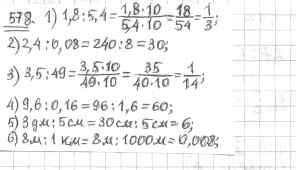 578. 1) 1,8:5,4 = 1,8·10/5,4·10 = 18/54 = 1/3;
2) 2,4:0,08 = 240:8 = 30;
3) 3,5:49 = 3,5·10/49·10 = 35/40·10 = 1/14;
4) 9,6:0,16 = 96:1,6 = 60;
5) 3дм:5см = 30см:5см = 6;
6) 8м:1км = 8м:1000м = 0,008;